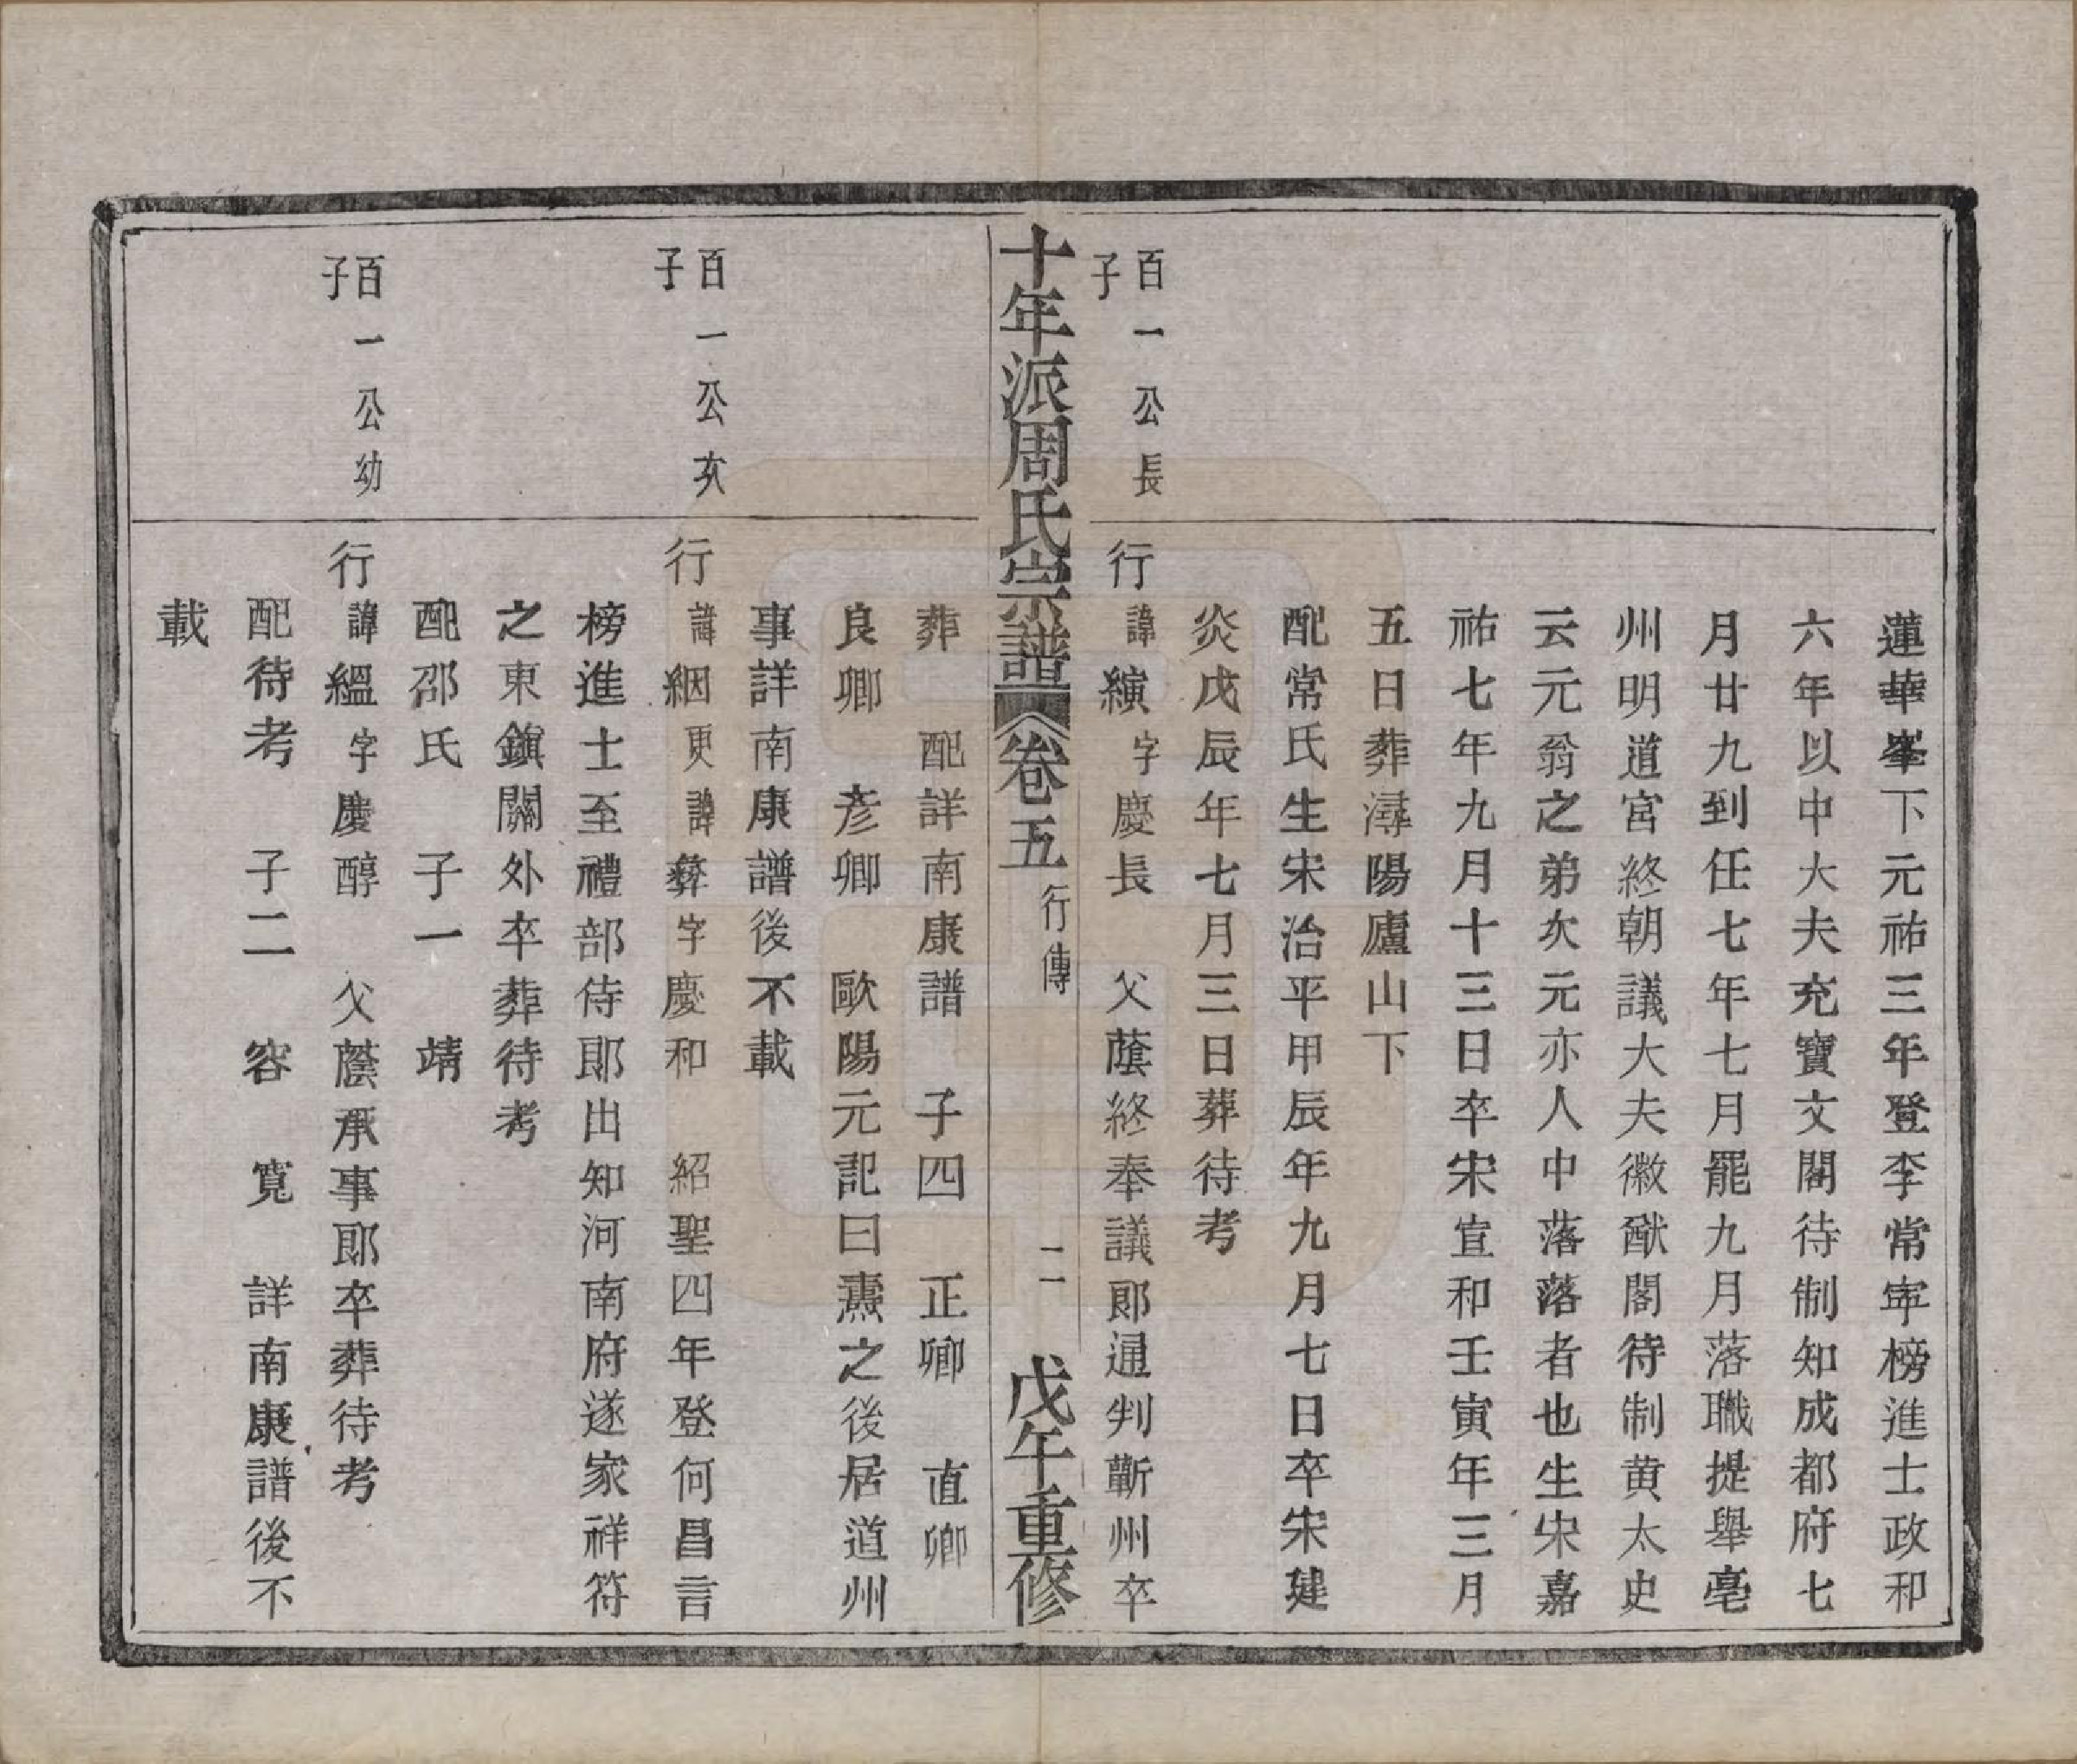 蓮華峯下元祐三年登李常寧榜進士政和
六年以中大夫充寶文閣待制知成都府七
月廿九到任七年七月罷九月落職提舉亳
州明道宮終朝議大夫徽猷閣待制黄太史
云元翁之弟次元亦人中落落者也生宋嘉
祐七年九月十三日卒宋宣和壬寅年三月
五日葬潯陽廬山下
配常氏生宋治平甲辰年九月七日卒宋建
炎戊辰年七月三日葬待考
百一公長
子
行諱縯字慶長　父蔭終奉議郎通判蘄州卒
十年派周氏宗譜 卷五 行傳 二 戊午重修
葬　配詳南康譜　子四　正卿　直卿
良卿　彦卿　歐陽元記曰燾之後居道州
事詳南康譜後不載
百一公次
子
行諱絪更諱彝字慶和　紹聖四年登何昌言
榜進士至禮部侍郎出知河南府遂家祥符
之東鎮關外卒葬待考
配邵氏　子一　靖
百一公幼
子
行諱縕字慶醇　父蔭承事郎卒葬待考
配待考　子二　容　寬　詳南康譜後不
載